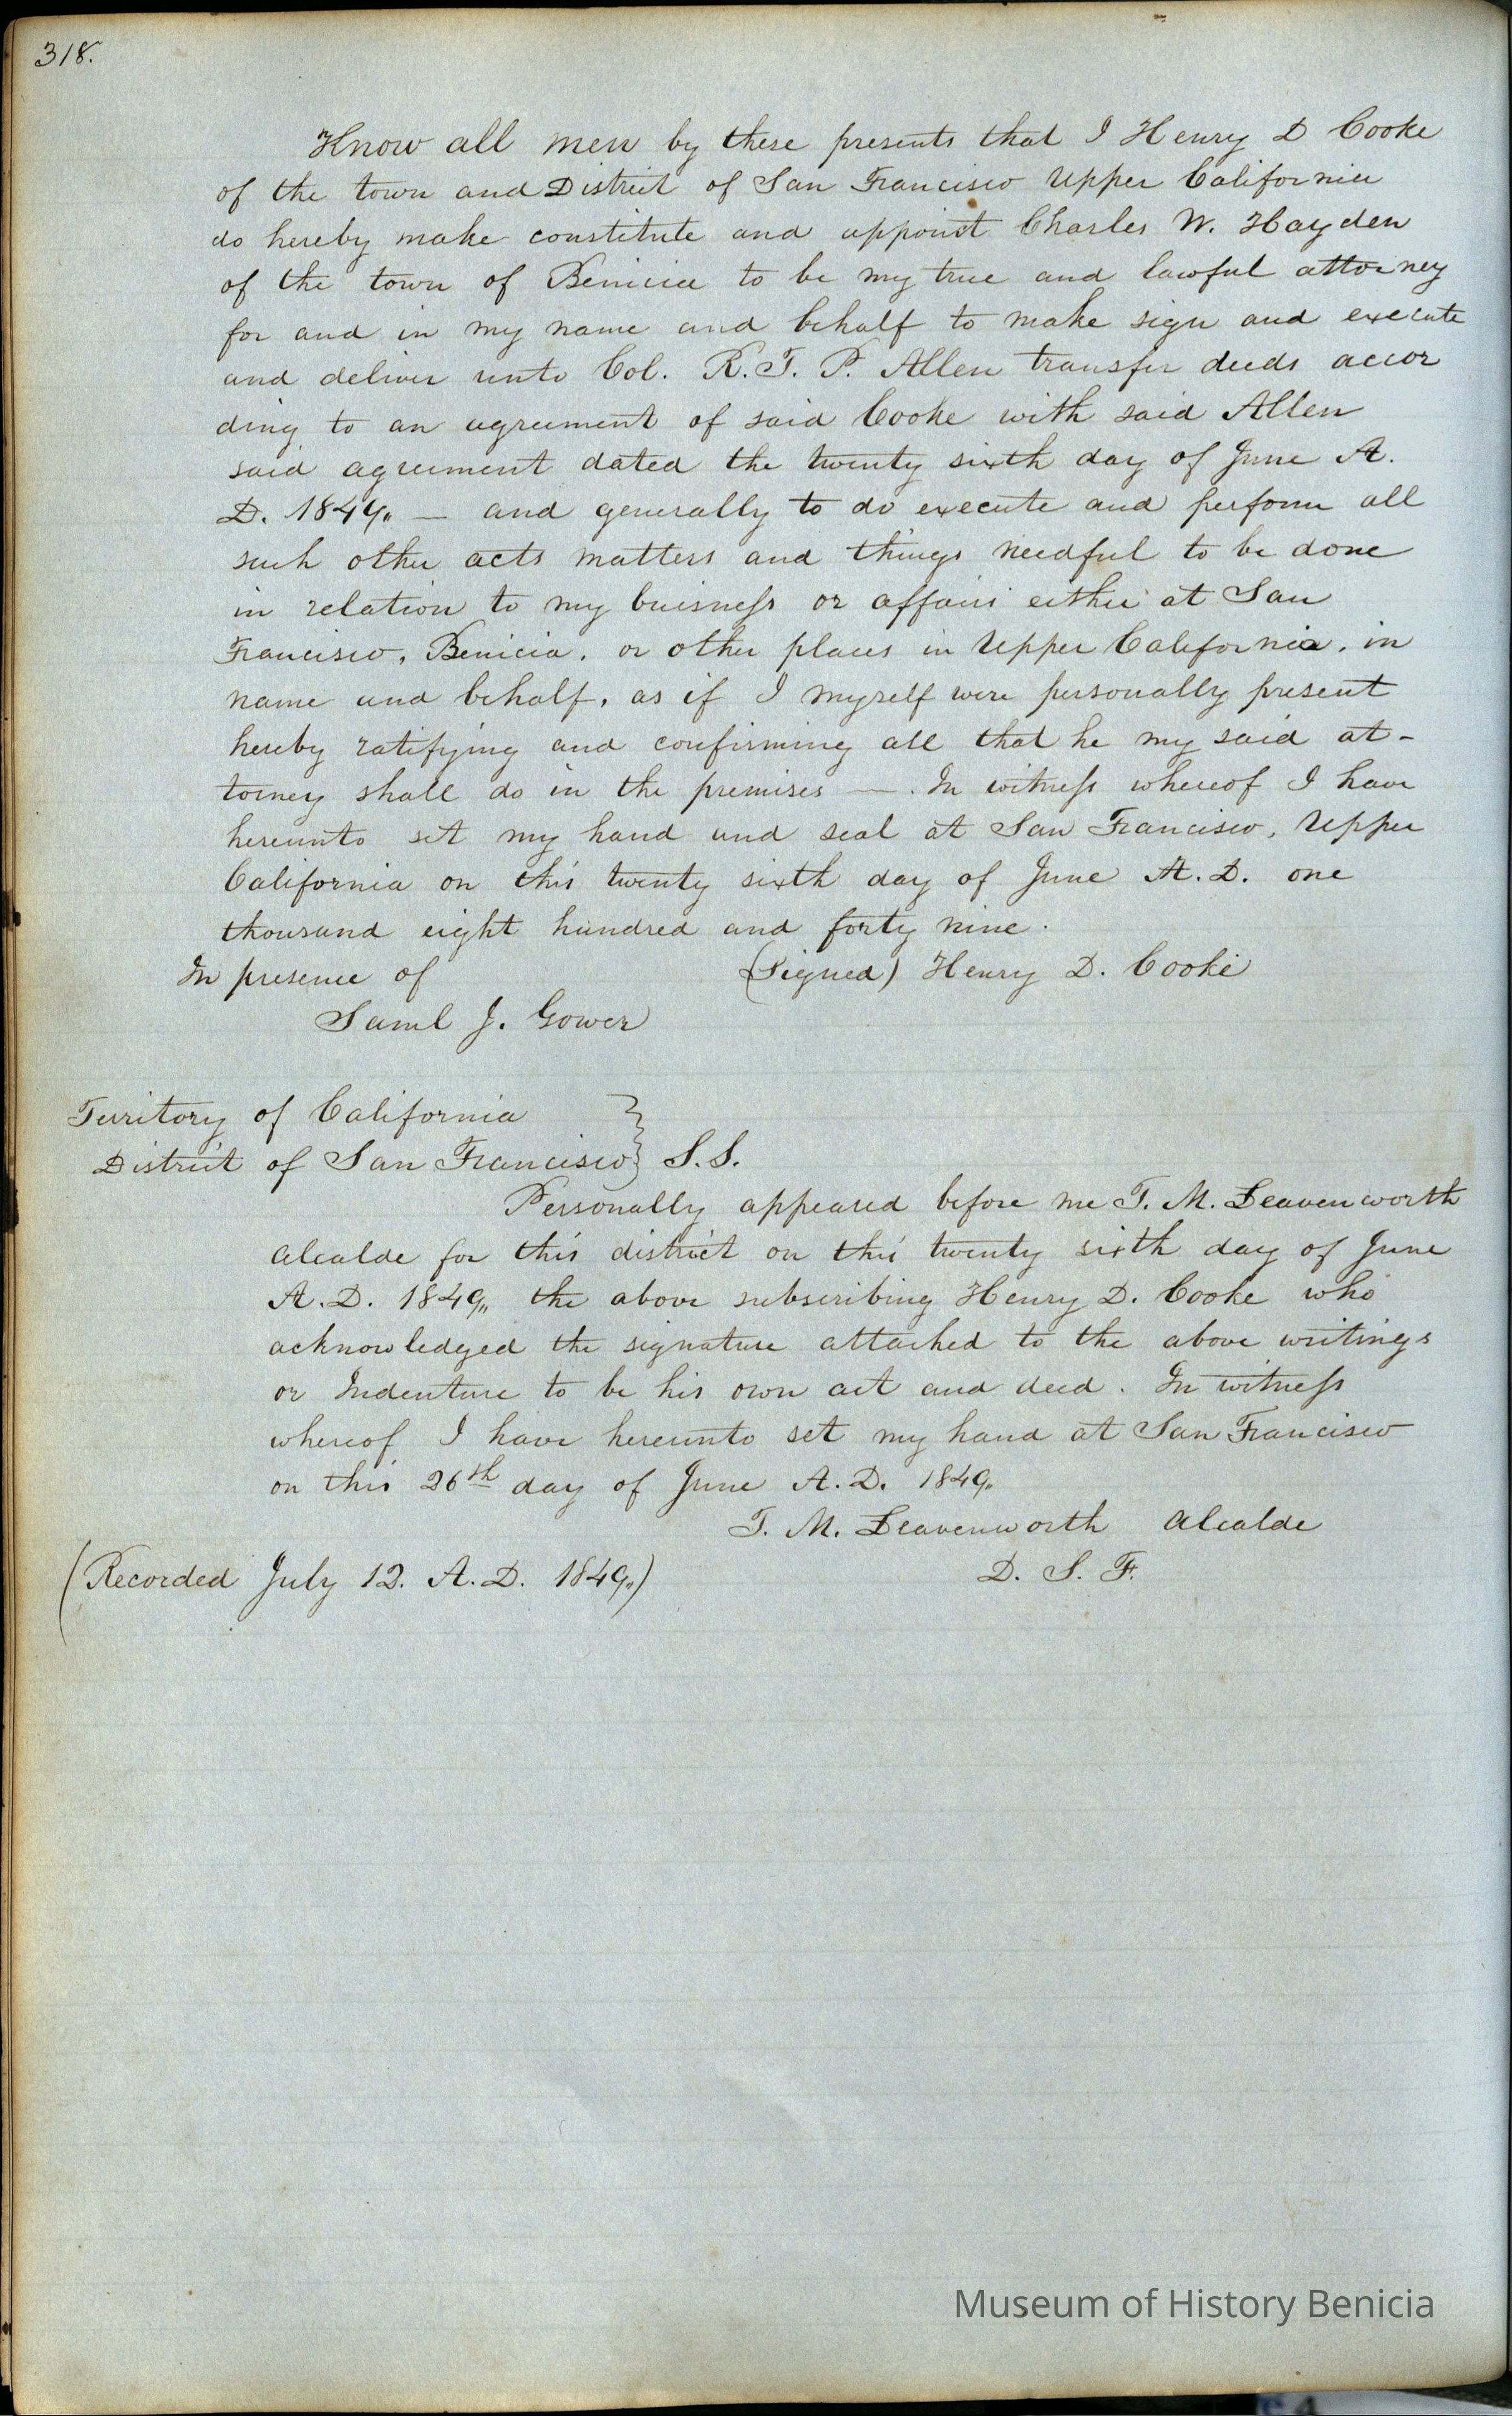 318.
Know all men by these presents that I Henry D Cooke
of the town and District of San Francisco Upper California
do hereby make constitute and appoint Charles W. Hayden
of the town of Benicia to be my true and lawful attorney
for and in my name and behalf to make sign and execute
and deliver unto Col. R. T. P. Allen transfer deeds accor
ding to an agreement of said Cooke with said Allen
said agreement dated the twenty sixth day of June A.
D. 1849„ — and generally to do execute and perform all
such other acts matters and things needful to be done
in relation to my buisness or affairs either at San
Francisco, Benicia, or other places in Upper California, in
name and behalf, as if I myself were personally present
hereby ratifying and confirming all that he my said at-
torney shall do in the premises —. In witness whereof I have
hereunto set my hand and seal at San Francisco, Upper
California on this twenty sixth day of June A.D. one
thousand eight hundred and forty nine.
In presence of (Signed) Henry D. Cooke
Saml J. Gower
Territory of California }
District of San Francisco } S.S.
Personally appeared before me T. M. Leavenworth
Alcalde for this district on this twenty sixth day of June
A.D. 1849„ the above subscribing Henry D. Cooke who
acknowledged the signature attached to the above writings
or Indenture to be his own act and deed. In witness
whereof I have hereunto set my hand at San Francisco
on this 26th day of June A.D. 1849„
T. M. Leavenworth Alcalde
D. S. F.
(Recorded July 12. A.D. 1849„)
Museum of History Benicia